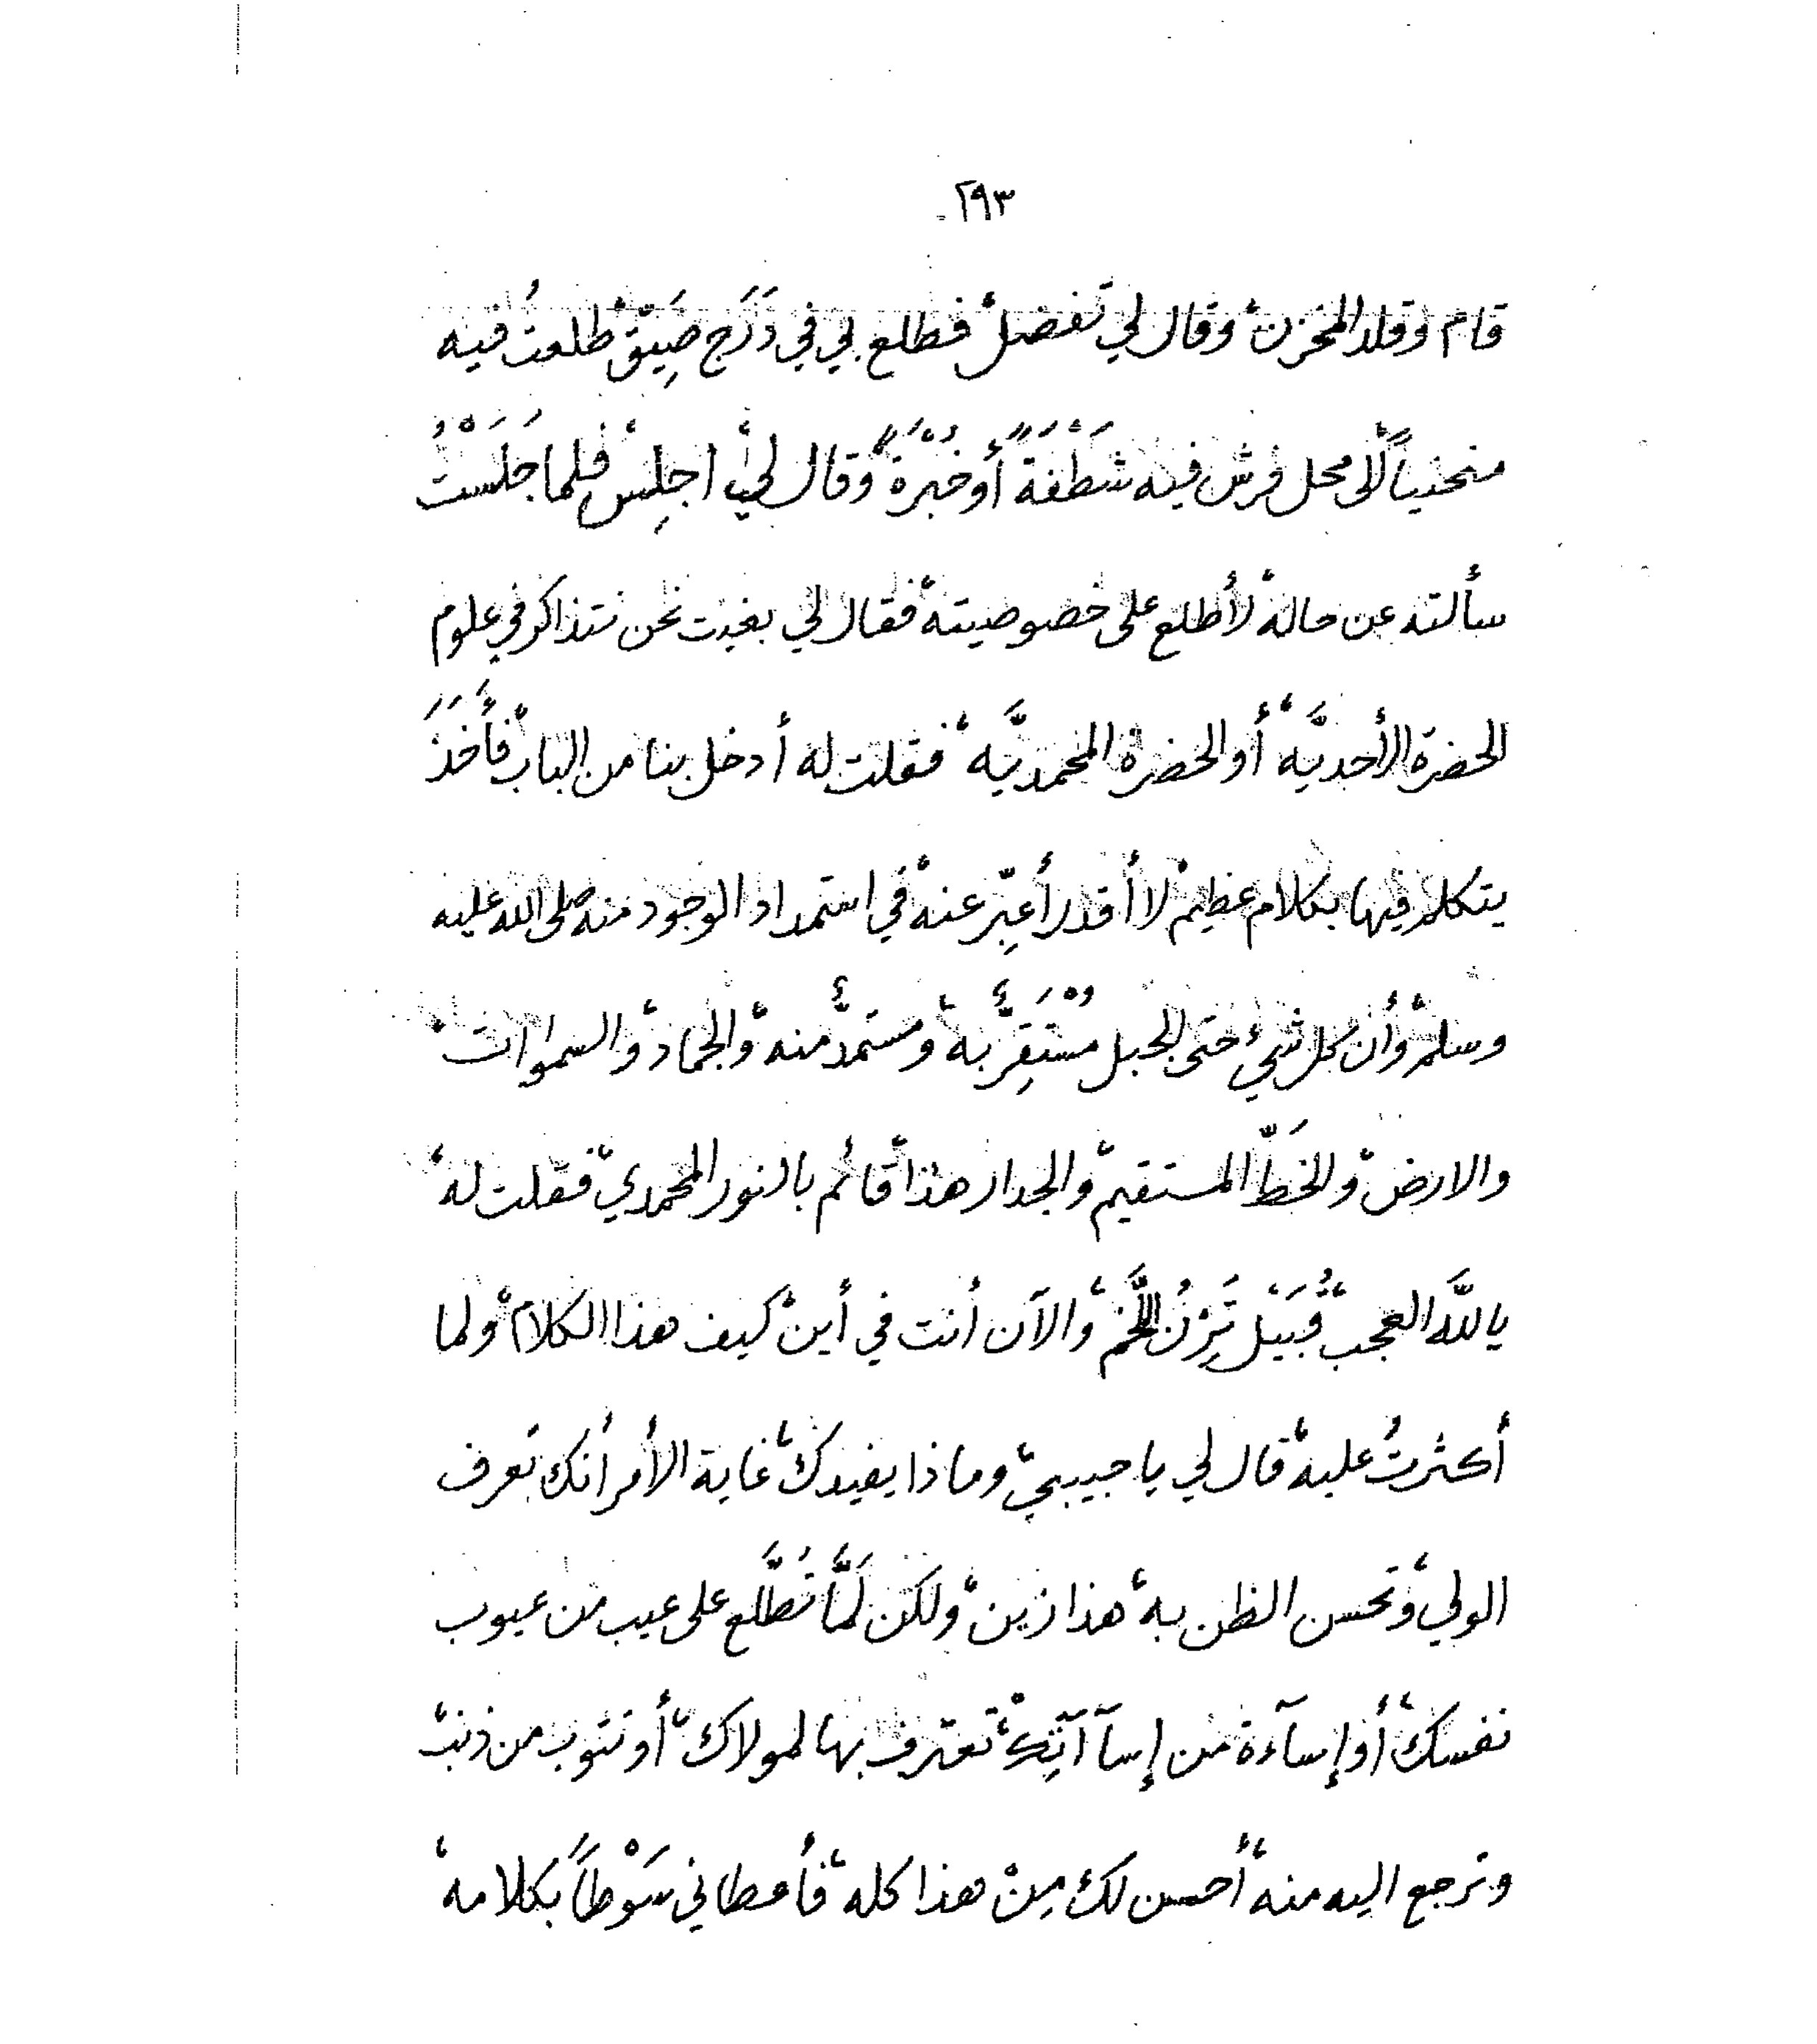 ٢٩٣
قام وقلد المخزن وقال لي تفضل فطلع بي في دَرَج ضِيّق طلعتُ فيه
منحنياً لّالى محل فرش فيه شَطْفَةً أو خُبْرَةً وقال لي اجلِس فلما جَلَسْتُ
سألته عن حاله لأطلع على خصوصيته فقال لي بغيت نحن نتذاكر في علوم
الحضرة الأحديَّه أو الحضرة المحمديَّه فقلت له أدخل بنا من الباب فأَخَذَ
يتكلم فيها بكلام عظيم لا أقدر أعبِّر عنه في استمداد الوجود منه صلى الله عليه
وسلم وأن كل شيء حتى الجبل مُسْتَقِرٌّ به ومستمدٌّ منه والجماد والسموات
والارض والخَطّ المستقيم والجدار هذا قائم بالنور المحمدي فقلت له
يا للَّه العجب قُبَيْل تَزِنُ اللَّخم والآن أنت في أين كيف هذا الكلام ولما
أكثرتُ عليه قال لي يا حبيبي وماذا يفيدك غاية الأمر أنك تعرف
الولي وتحسن الظن به هذا زين ولكن لَمَّا تُطَّلع على عيب من عيوب
نفسك أو إسآءة من إسآآتِك تعترف بها لمولاك أو تتوب من ذنب
وترجع اليه منه أحسن لك مِنْ هذا كله فأعطاني سَوْطاً بكلامه